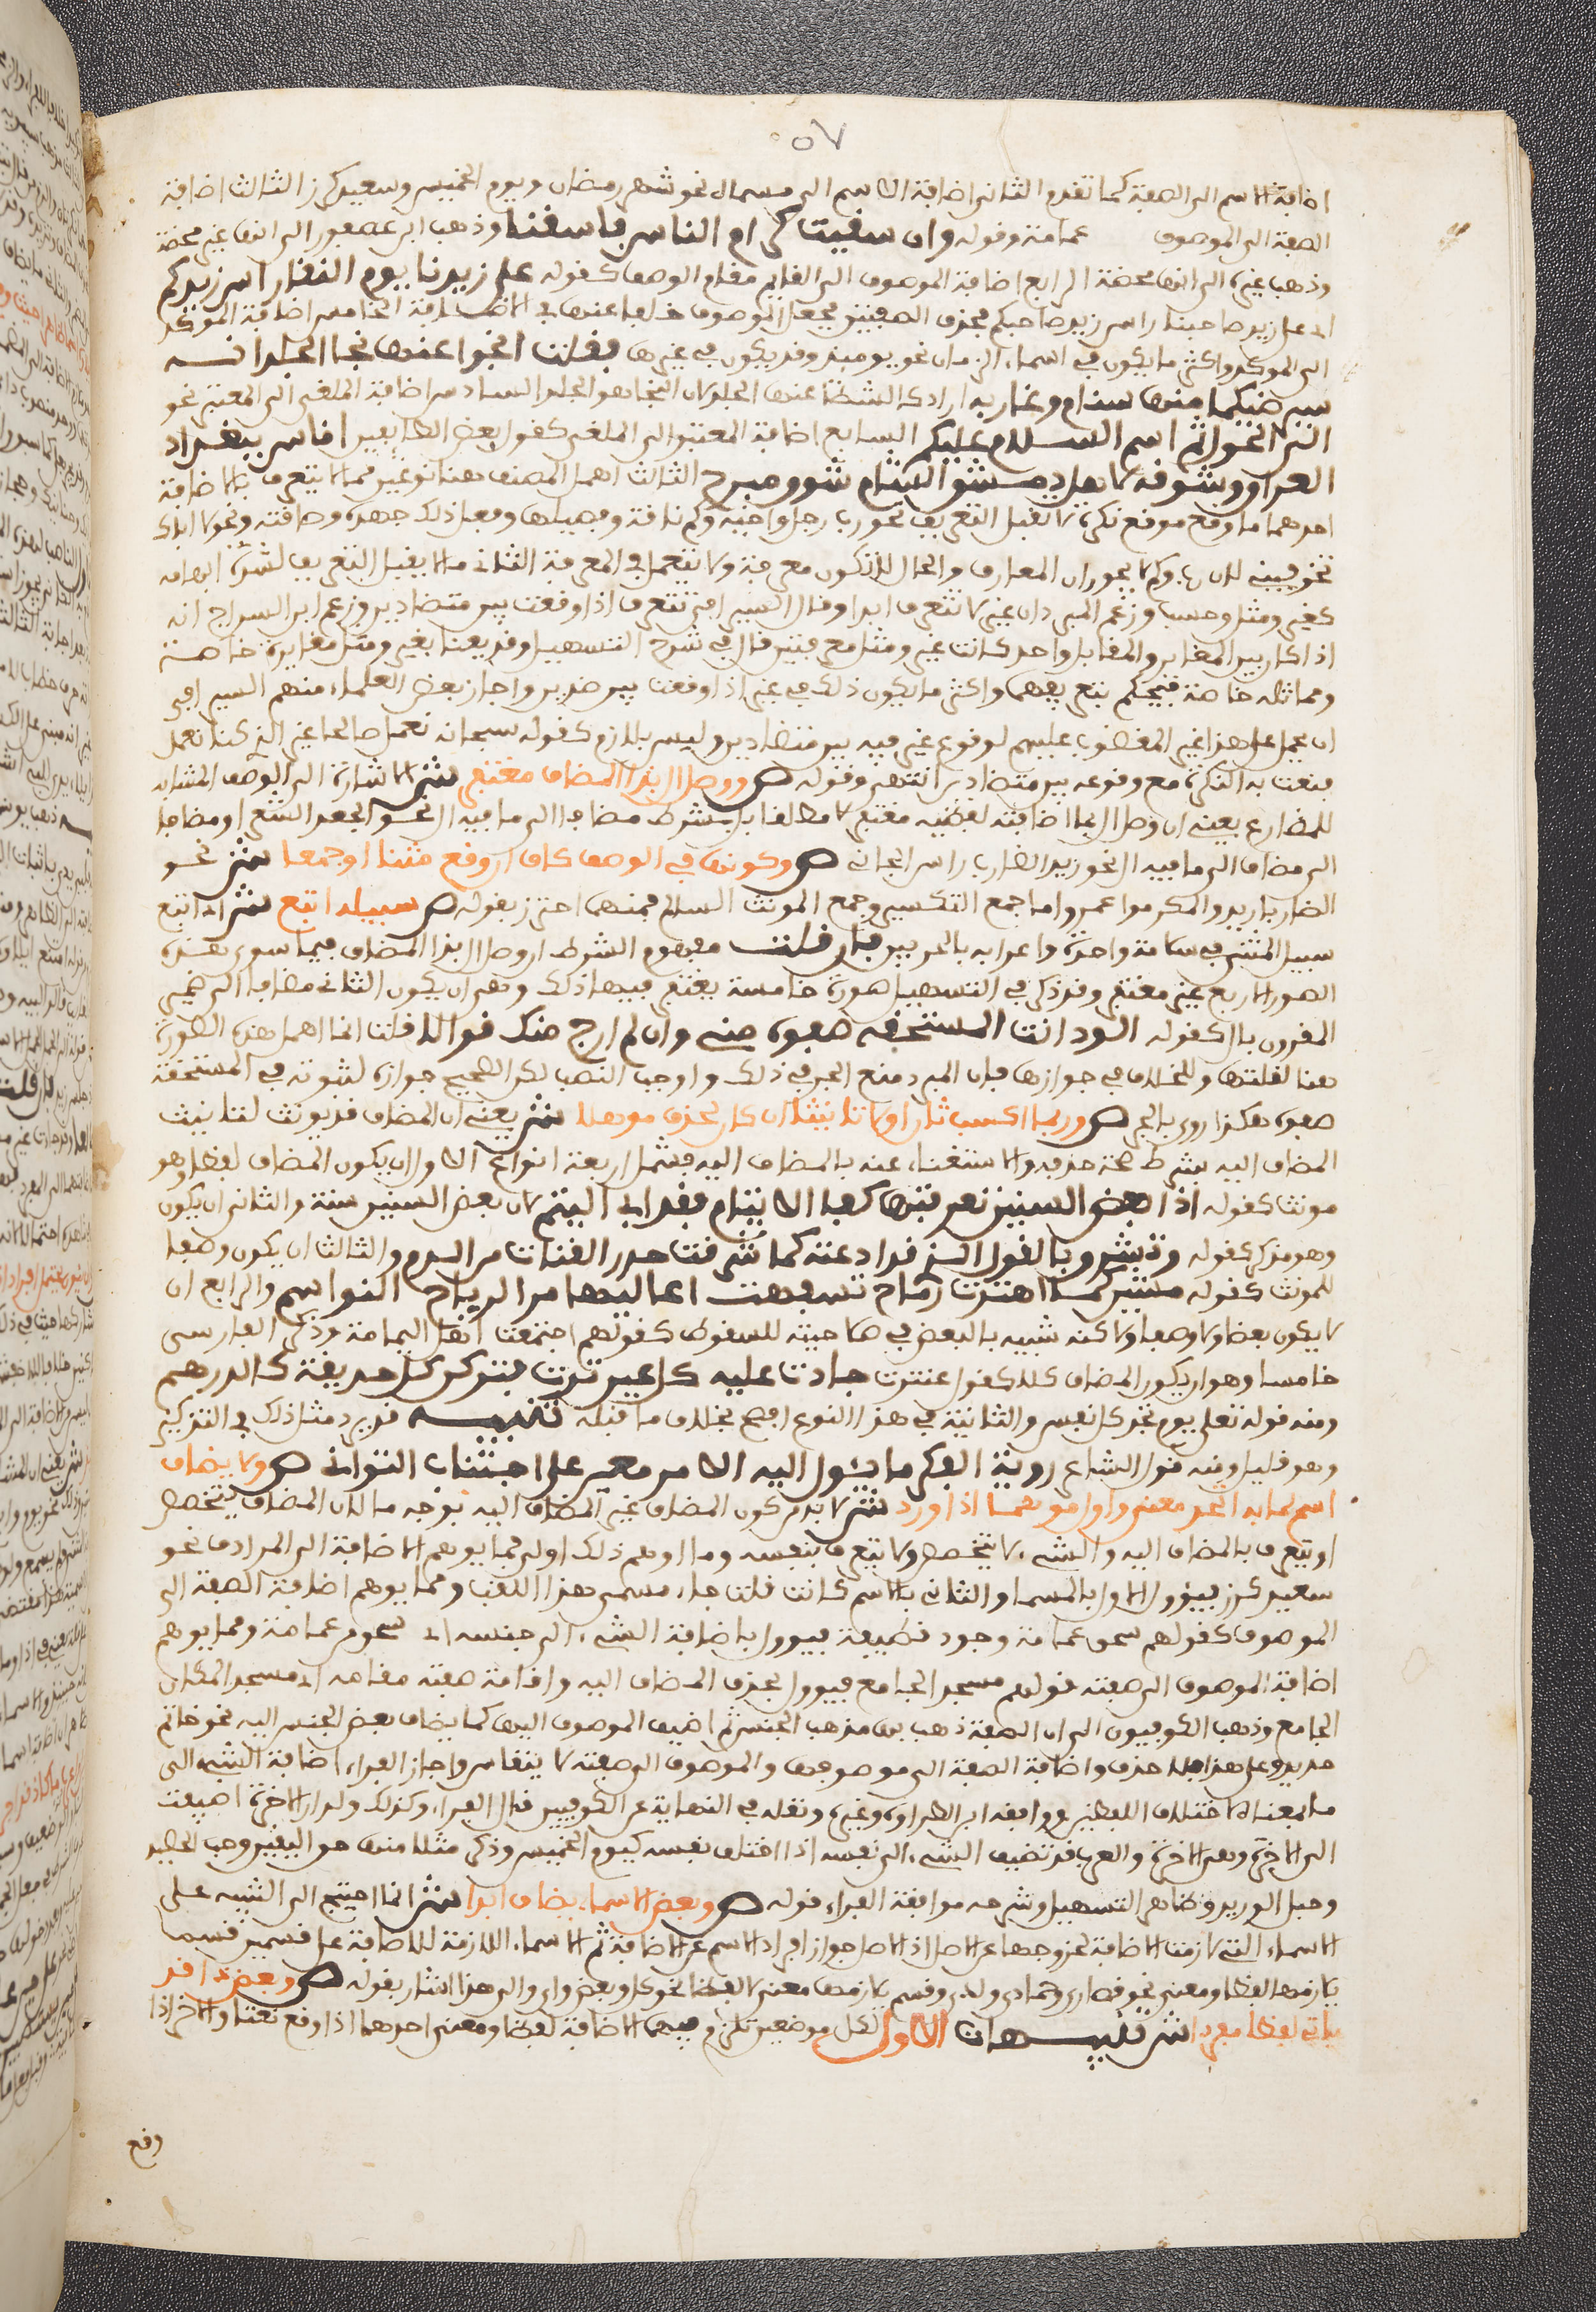 ٥٧
اضافة الاسم الى الصفة كما تقدم الثانى اضافة الاسم الى مسماه نحو شهر رمضان ويوم الخميس وسعيد كرز الثالث اضافة
الصفة الى الموصوف عمامة وقوله وان سقيت كرام الناس فاسقينا وذهب ابن عصفور الى انها غير محضة
وذهب غيره الى انها محضة الرابع اضافة الموصوف الى القايم مقام الوصف كقوله على زيدنا يوم النقا راس زيدكم
اى على زيد صاحبنا راس زيد صاحبكم فحذف الصفتين وجعل الموصوف خلفا عنهما فى الاضافة الخامس اضافة الموكد
الى الموكد واكثر ما يكون فى اسماء الزمان نحو يومئذ وقد يكون فى غيرها فقلت انجوا عنها نجا الجلد انه
سيرضيكما منها سنام وغاربه اراد اكشطا عنها الجلد لان النجا هو الجلد السادس اضافة الملغى الى المعتبر نحو
الى الحول ثم اسم السلام عليكما السابع اضافة المعتبر الى الملغى كقول بعض الطائيين اقام ببغداد
العراق وشوقه لاهل دمشق الشام شوق مبرح الثالث اهمل المصنف هنا نوعين مما لا يتعرف بالاضافة
احدهما ما وقع موقع نكرة لا تقبل التعريف نحو رب رجل واخيه وكم ناقة وفصيلها وفعل ذلك جهده وطاقته ونحو لا اباك
تخوفينه لان رب وكم لا يجران المعارف والحال لا تكون معرفة ولا تتعمل فى المعرفة الثانى ما لا يقبل التعريف لشدة ابهامه
كغير ومثل وحسب وزعم المبرد ان غير لا تتعرف ابدا وقال السيرافى تتعرف اذا وقعت بين متضادين وزعم ابن السراج انه
اذا كان بين المغاير والمقابل واحد كانت غير ومثل معرفتين قال فى شرح التسهيل وقد يعنا بغير ومثل مغايرة خاصة
ومماثلة خاصة فيحكم بتعريفهما واكثر ما يكون ذلك فى غير اذا وقعت بين ضدين واجاز بعض العلماء منهم السيرافى
ان يحمل على هذا غير المغضوب عليهم لوقوع غير فيه بين متضادين وليس بلازم كقوله سبحانه نعمل صالحا غير الذى كنا نعمل
فنعت به النكرة مع وقوعه بين متضادين انتهى وقوله ص ووصل ال بذا المضاف مغتفر ش الاشارة الى الوصف المشابه
للمضارع يعنى ان وصل ال بما اضافته لفظية مغتفر لا مطلقا بل بشرط مضافا الى ما فيه ال نحو الجعد الشعر او مضافا
الى مضاف الى ما فيه ال نحو زيد الضارب راس الجانى ص وكونها فى الوصف كاف ان وقع مثنا او جمعا ش نحو
الضاربا زيد والمكرموا عمرو واما جمع التكسير وجمع المونث السالم فمنهما احترز بقوله ص سبيله اتبع ش اى اتبع
سبيل المثنى فى سلامة واحده واعرابه بالحرفين فان قلت مفهوم الشرط ان وصل ال بذا المضاف فيما سوى هذه
الصور الاربع غير مغتفر وقد ذكر فى التسهيل صورة خامسة يغتفر فيها ذلك وهى ان يكون الثانى مضافا الى ضمير
المقرون بال كقوله الود انت المستحقة صفوه منى وان لم ارج منك نوالا قلت انما اهمل هذه الصورة
هنا لقلتها وللخلاف فى جوازها فان المبرد منع الجر فى ذلك واوجب النصب لكن الصحيح جوازه لثبوته فى المستحقة
صفوه هكذا روى بالجر ص وربما اكسب ثان اولا تانيثا ان كان لحذف موهلا ش يعنى ان المضاف قد يونث لتانيث
المضاف اليه بشرط صحة حذفه والاستغناء عنه بالمضاف اليه فشمل اربعة انواع الاول ان يكون المضاف بعضا وهو
مونث كقوله اذا بعض السنين تعرقتنا كفى الايتام فقد ابى اليتيم لان بعض السنين سنة والثانى ان يكون
وهو مذكر كقوله وتشرق بالقول الذى قد اذعته كما شرقت صدر القناة من الدم والثالث ان يكون وصفا
للمونث كقوله مشين كما اهتزت رماح تسفهت اعاليها مر الرياح النواسم والرابع ان
لا يكون بعضا ولا وصفا ولاكنه شبيه بالبعض فى صلاحيته للسقوط كقولهم اجتمعت اهل اليمامة وذكر الفارسى
خامسا وهو ان يكون المضاف كلا كقول عنترة جادت عليه كل عين ثرة فتركن كل حديقة كالدرهم
ومنه قوله تعلى يوم تجد كل نفس والثانية فى هذا النوع افصح بخلاف ما قبله تنبيه قد يرد مثل ذلك فى التذكير
وهو قليل ومنه قول الشاعر روية الفكر ما يئول اليه الامر معين على اجتناب التوانى ص ولا يضاف
اسم لما به اتحد معنى واول موهما اذا ورد ش لا بد من كون المضاف غير المضاف اليه بوجه ما لان المضاف يتخصص
او يتعرف بالمضاف اليه والشىء لا يتخصص ولا يتعرف بنفسه وما اوهم ذلك اول فمما يوهم الاضافة الى المرادف نحو
سعيد كرز فيؤول الاول بالمسما والثانى بالاسم كانت قلت جاء مسمى هذا اللقب ومما يوهم اضافة الصفة الى
الموصوف كقولهم سحق عمامة وجرد قطيفة فيوول باضافة الشىء الى جنسه اى سحق من عمامة ومما يوهم
اضافة الموصوف الى صفته قولهم مسجد الجامع فيوول بحذف المضاف اليه واقامة صفته مقامه اى مسجد المكان
الجامع وذهب الكوفيون الى ان الصفة ذهب بها مذهب الجنس ثم اضيف الموصوف اليها كما يضاف بعض الجنس اليه نحو خاتم
حديد وعلى هذا فلا حذف واضافة الصفة الى موصوفها والموصوف الى صفته لا ينقاس واجاز الفراء اضافة الشىء الى
ما بمعناه لاختلاف اللفظين ووافقه ابن الطراوة وغيره ونقله فى النهاية عن الكوفيين قال الفراء وكذلك ولدار الاخرة اضيفت
الى الاخرة وهى الاخرة والعرب قد تضيف الشىء الى نفسه اذا اختلف لفظه كيوم الخميس وذكر مثلا منها حق اليقين وحب الحصيد
وحبل الوريد وظاهر التسهيل وشرحه موافقة الفراء قوله ص وبعض الاسماء يضاف ابدا ش انما احتيج الى التنبيه على
الاسماء التى لازمت الاضافة لخروجها عن الاصل اذ الاصل جواز افراد الاسم عن الاضافة ثم الاسماء اللازمة للاضافة على قسمين قسم
يلازمها لفظا ومعنى نحو قصارى وحمادى ولدى وقسم يلازمها معنى لا لفظا نحو كل وبعض واى والى هذا اشار بقوله ص وبعض ذا قد
يات لفظا مفردا ش تنبيهات الاول لكل موضعين تلزم فيهما الاضافة لفظا ومعنى احدهما اذا وقع نعتا والاخر اذا
وقع